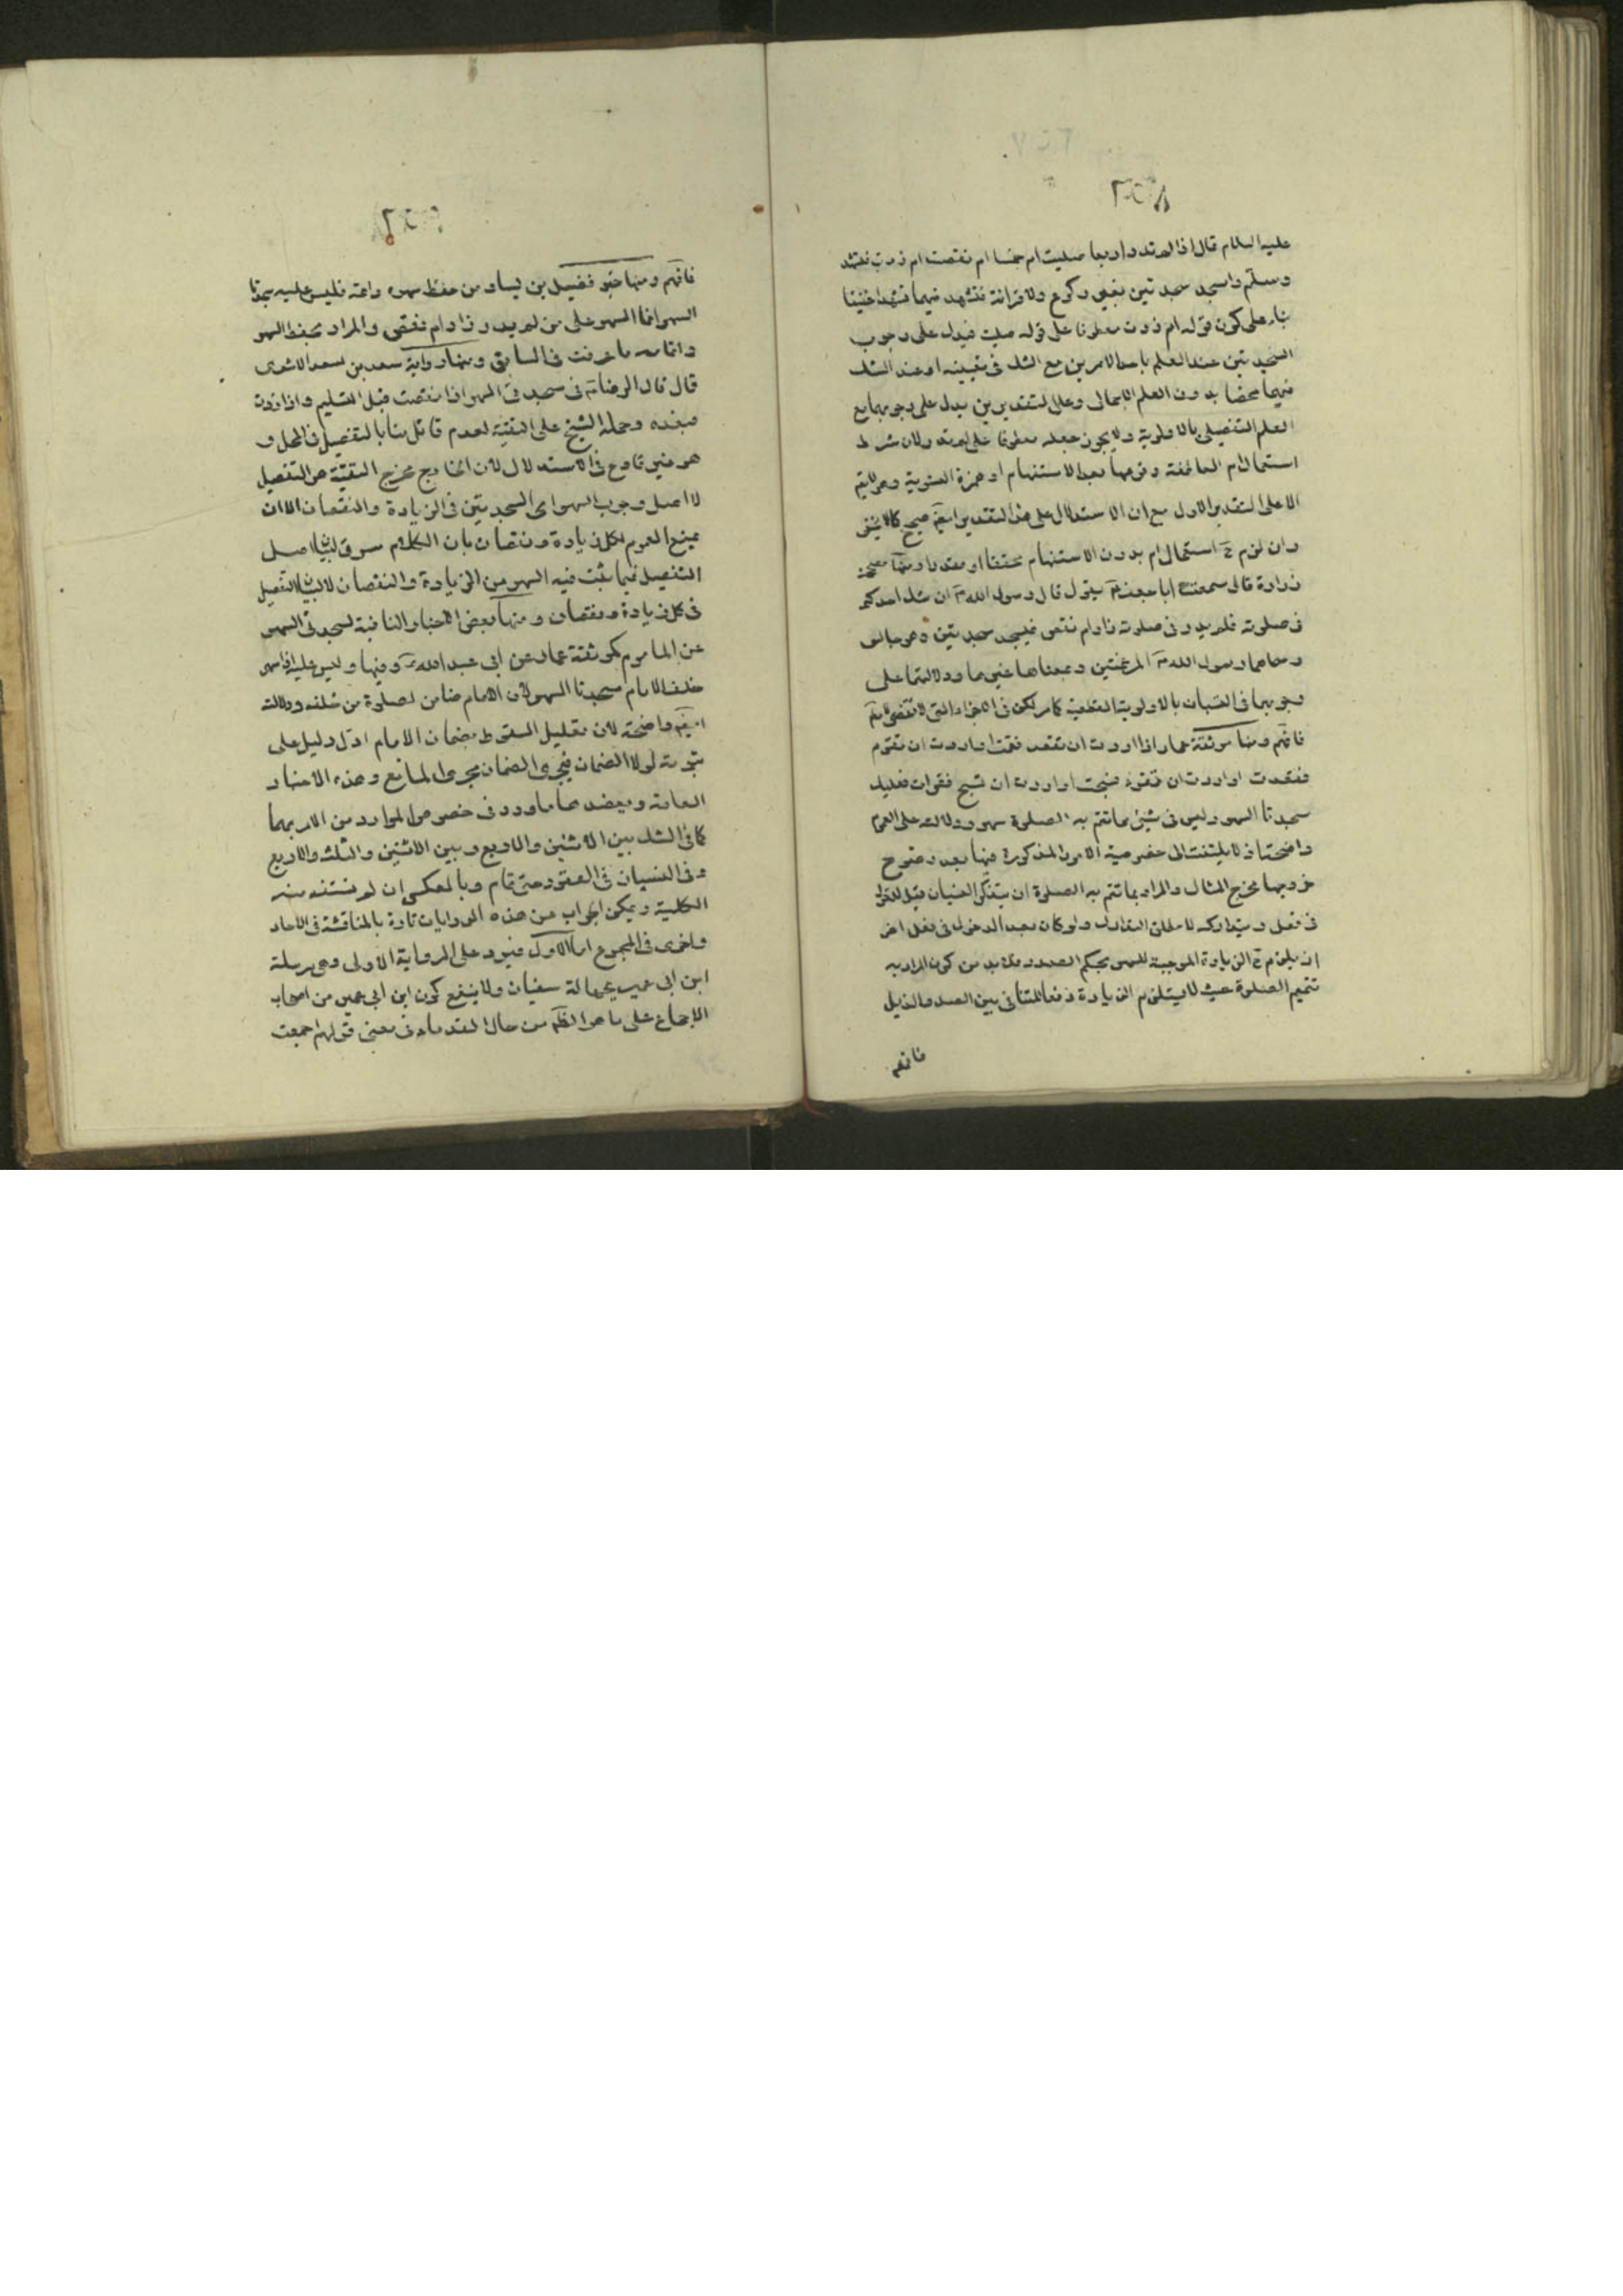 ٢٥٨
عليه السلام قال اذا لم تدر اربعا صليت ام خمسا ام نقصت ام زدت فتشهد
وسلم واسجد سجدتين بغير ركوع ولا قرائة فتشهد فيهما تشهدا خفيفا
بناء على كون قوله ام زدت معطوفا على قوله صليت فيدل على وجوب
السجدتين عند العلم باحد الامرين مع الشك في تعيينه او عند الشك
فيهما محضا بدون العلم الاجمالي وعلى التقديرين يدل على وجوبهما مع
العلم التفصيلي بالاولوية ولا يجوز جعله معطوفا على لم تدر ولان شرط
استعمال ام العاطفة وقوعها بعد الاستفهام او همزة التسوية وهو لا يتم
الا على التقدير الاول مع ان الاستدلال على هذا التقدير ايضم صحيح كما لا يخفى
وان لزم ح استعمال ام بدون الاستفهام محققا او مقدرا ومنها صحيحة
زرارة قال سمعت ابا جعفر يقول قال رسول الله ص ان شك احدكم
في صلوته فلم يدر في صلوته زاد ام نقص فليسجد سجدتين وهو جالس
وسماهما رسول الله ص المرغمتين وبمعناها غيرها ودلالتها على
وجوبهما في النسيان بالاولوية القطعية كما مر لكن في الاجزاء التي لا تقضى
فافهم ومنها موثقة عمار اذا اردت ان تقعد فقمت او اردت ان تقوم
فقعدت او اردت ان تقرء فسبحت او اردت ان تسبح فقرات فعليك
سجدتا السهو وليس في شيئ مما تتم به الصلوة سهو ودلالته على العموم
واضحة اذ لا يلتفت الى خصوصية الامور المذكورة فيها بعد وضوح
خروجها مخرج المثال والمراد بما تتم به الصلوة ان يتذكر النسيان قبل الدخول
في فعل ويتداركه لا مطلق التدارك ولو كان بعد الدخول في فعل اخر
ان يلزم ح الزيادة الموجبة للسهو بحكم الصدر فلا بد من كون المراد به
تتميم الصلوة حيث لا يستلزم الزيادة دفعا للتنافي بين الصدر والذيل
فافهم
٢٥٩
فافهم ومنها خبر فضيل بن يسار من حفظ سهوه واتمه فليس عليه سجدتا
السهو انما السهو على من لم يدر زاد ام نقص والمراد بحفظ السهو
واتمامه ما عرفت في السابق ومنها رواية سعد بن سعد الاشعري
قال قال الرضا ع في سجدتي السهو اذا نقصت قبل التسليم واذا زدت
فبعده وحمله الشيخ على التقية لعدم قائل منا بالتفصيل في المحل و
هو غير قادح في الاستدلال لان الخارج مخرج التقية هو التفصيل
لا اصل وجوب السهو اي السجدتين في الزيادة والنقصان الا ان
يمنع العموم لكل زيادة ونقصان بان الكلام سوق لبيان اصل
التفصيل فيما يثبت فيه السهو من الزيادة والنقصان لا لبيان التفصيل
في كل زيادة ونقصان ومنها بعض الاخبار النافية لسجدتي السهو
عن الماموم كموثقة عمار عن ابي عبد الله ع وفيها وليس عليه اذا سهى
خلف الامام سجدتا السهو لان الامام ضامن لصلوة من خلفه ودلالته
ايضم واضحة لان تعليل السقوط بضمان الامام ادل دليل على
ثبوته لولا الضمان فيجري الضمان مجرى المانع وهذه الاخبار
العامة ويعضدها ما ورد في خصوص الموارد من الامر بهما
كما في الشك بين الاثنين والاربع وبين الاثنين والثلث والاربع
وفي النسيان في القعود حتى قام وبالعكس ان لم نستفد منه
الكلية ويمكن الجواب عن هذه الروايات تارة بالمناقشة في الاحاد
واخرى في المجموع اما الاول فيرد على الرواية الاولى وهي مرسلة
ابن ابي عمير بجهالة سفيان ولا ينفع كون ابن ابي عمير من اصحاب
الاجماع على ما هو الظم من حال القدماء في معنى قولهم اجمعت